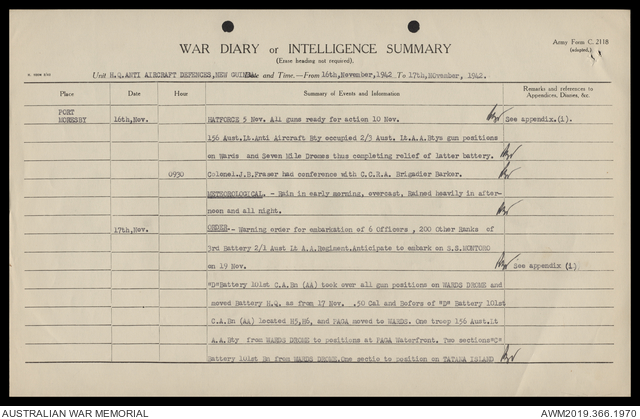 Army Form C. 2118
(adapted.)
WAR DIARY or INTELLIGENCE SUMMARY
(Erase heading not required).
Unit H.Q.ANTI AIRCRAFT DEFENCES,NEW GUINEA Date and Time.—From 16th,November,1942 To 17th,November, 1942.
Place Date Hour Summary of Events and Information Remarks and references to Appendices, Diaries, &c.
PORT MORESBY 16th,Nov. HATFORCE 5 Nov. All guns ready for action 10 Nov. See appendix.(i).
156 Aust.Lt.Anti Aircraft Bty occupied 2/3 Aust. Lt.A.A.Btys gun positions
on Wards and Seven Mile Dromes thus completing relief of latter battery.
0930 Colonel.J.B.Fraser had conference with C.C.R.A. Brigadier Barker.
METEOROLOGICAL. - Rain in early morning, overcast. Rained heavily in after-
noon and all night.
17th,Nov. ORDER-- Warning order for embarkation of 6 Officers , 200 Other Ranks of
3rd Battery 2/1 Aust Lt A.A.Regiment.Anticipate to embark on S.S.MUNTORO
on 19 Nov. See appendix (i)
"D"Battery 101st C.A.Bn (AA) took over all gun positions on WARDS DROME and
moved Battery H.Q. as from 17 Nov. .50 Cal and Bofors of "D" Battery 101st
C.A.Bn (AA) located H5,H6, and PAGA moved to WARDS. One troop 156 Aust.Lt
A.A.Bty from WARDS DROME to positions at PAGA Waterfront. Two sections"C"
Battery 101st Bn from WARDS DROME.One sectio to position on TATANA ISLAND
AUSTRALIAN WAR MEMORIAL AWM2019.366.1970